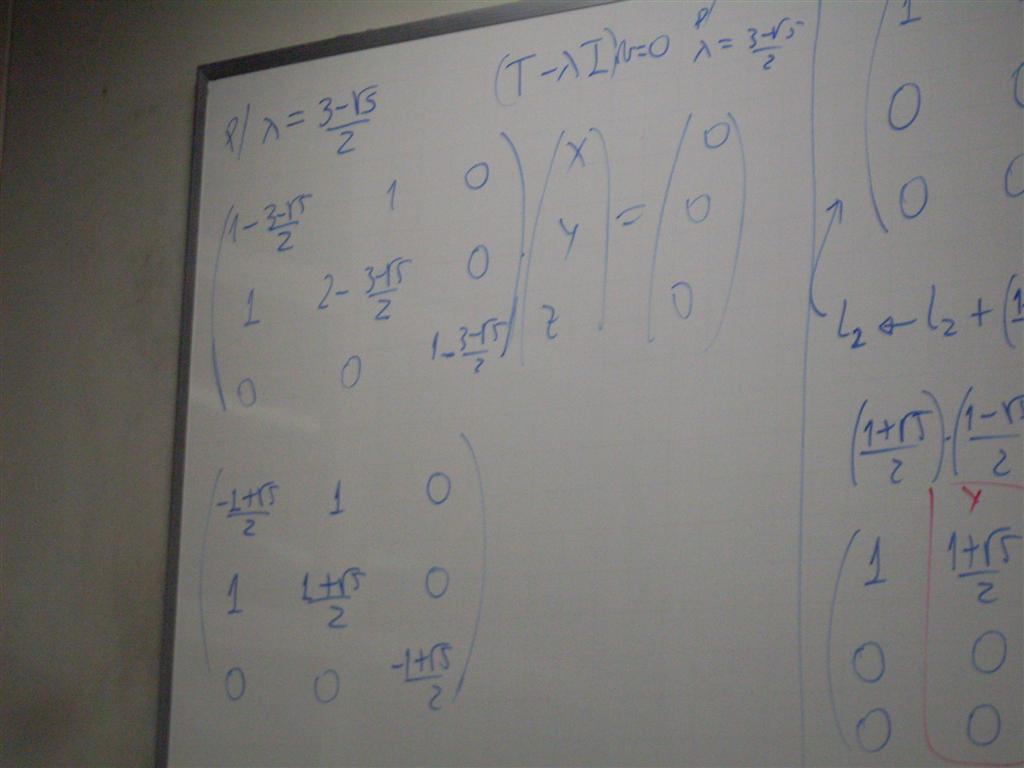 (T - λI)v = 0 p/ λ = (3-√5)/2
p/ λ = (3-√5)/2
( 1 - (3-√5)/2 1 0 ) ( x ) = ( 0 )
( 1 2 - (3-√5)/2 0 ) ( y ) ( 0 )
( 0 0 1 - (3-√5)/2 ) ( z ) ( 0 )
( (-1+√5)/2 1 0 )
( 1 (1+√5)/2 0 )
( 0 0 (-1+√5)/2 )
( 1
0 0
0 0
L₂ ← L₂ + (1
((1+√5)/2) · ((1-√5)/2
y
( 1 (1+√5)/2
0 0
0 0